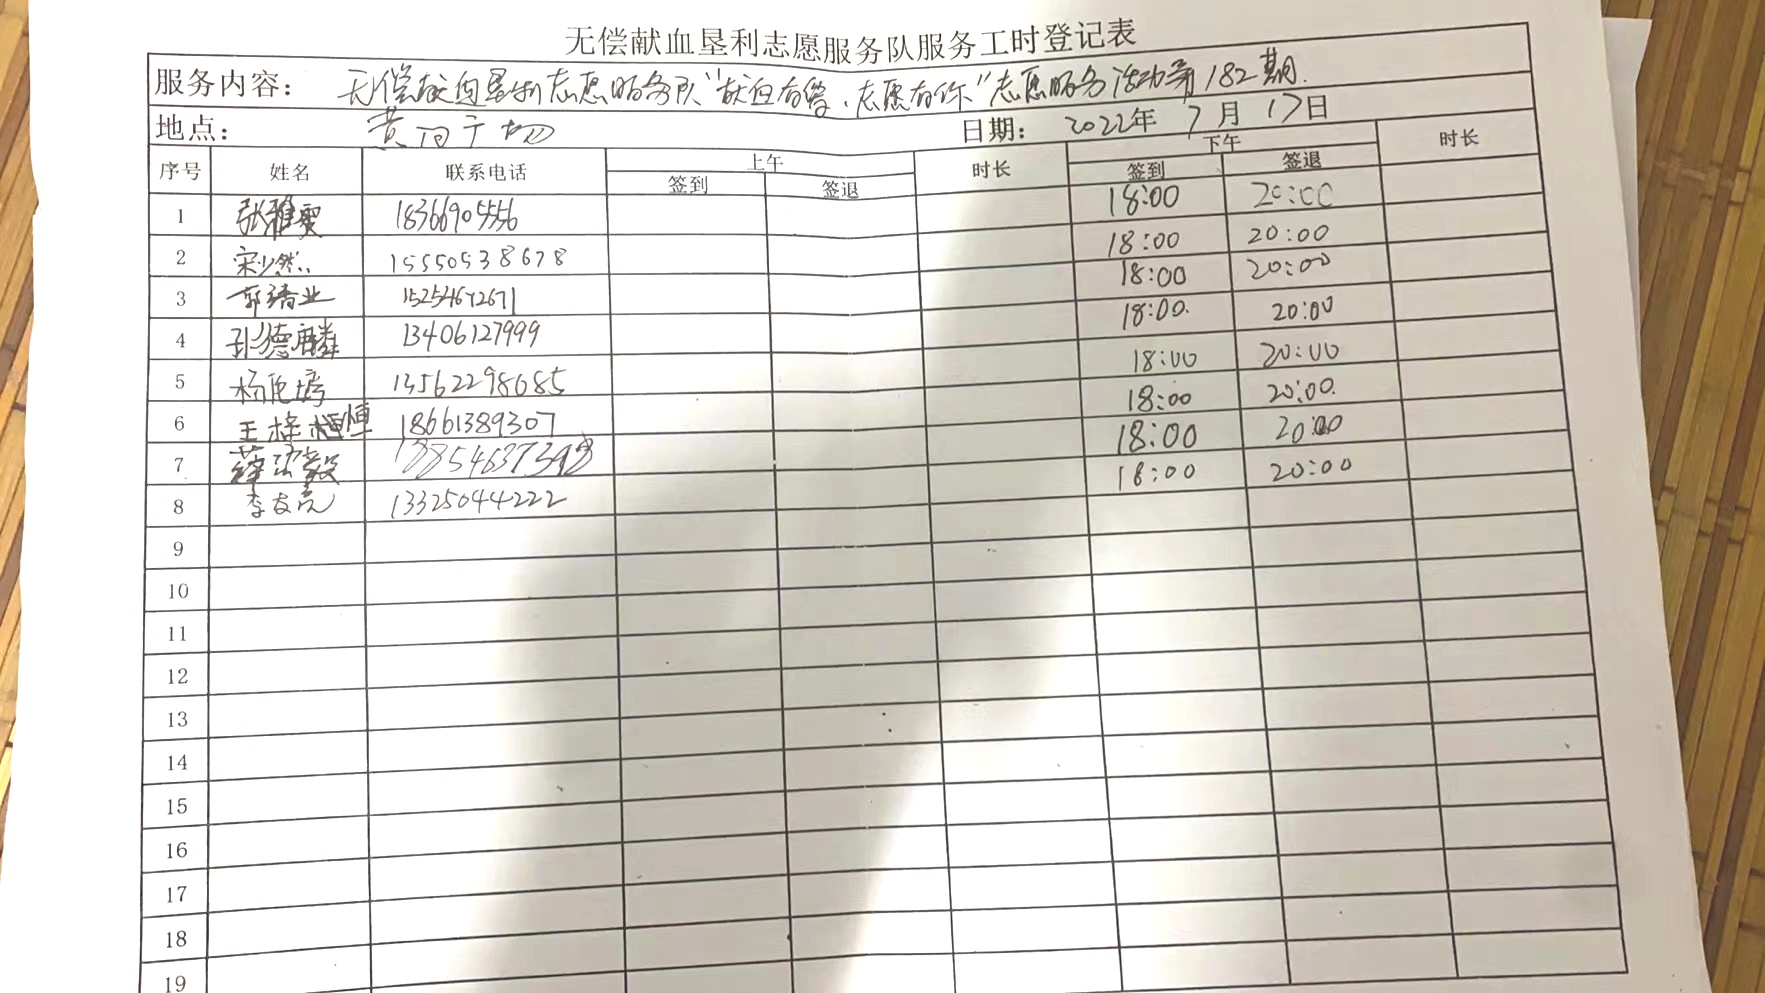 无偿献血垦利志愿服务队服务工时登记表
服务内容： 无偿献血垦利志愿服务队"献血有゙，志愿有你"志愿服务活动第182期.
地点： 黄河广场 日期： 2022年 7月 17日
序号 姓名 联系电话 上午 时长 下午 时长
签到 签退 签到 签退
1 张雅雯 18366905556 18:00 20:00
2 宋少然 15550538678 18:00 20:00
3 郭清业 15254672671 18:00 20:00
4 孙德麟 13406127999 18:00. 20:00
5 杨 13562298685 18:00 20:00
6 王梓恒 18661389307 18:00 20:00.
7 薛 18:00 20:00
8 李友亮 13325044222 18:00 20:00
9
10
11
12
13
14
15
16
17
18
19